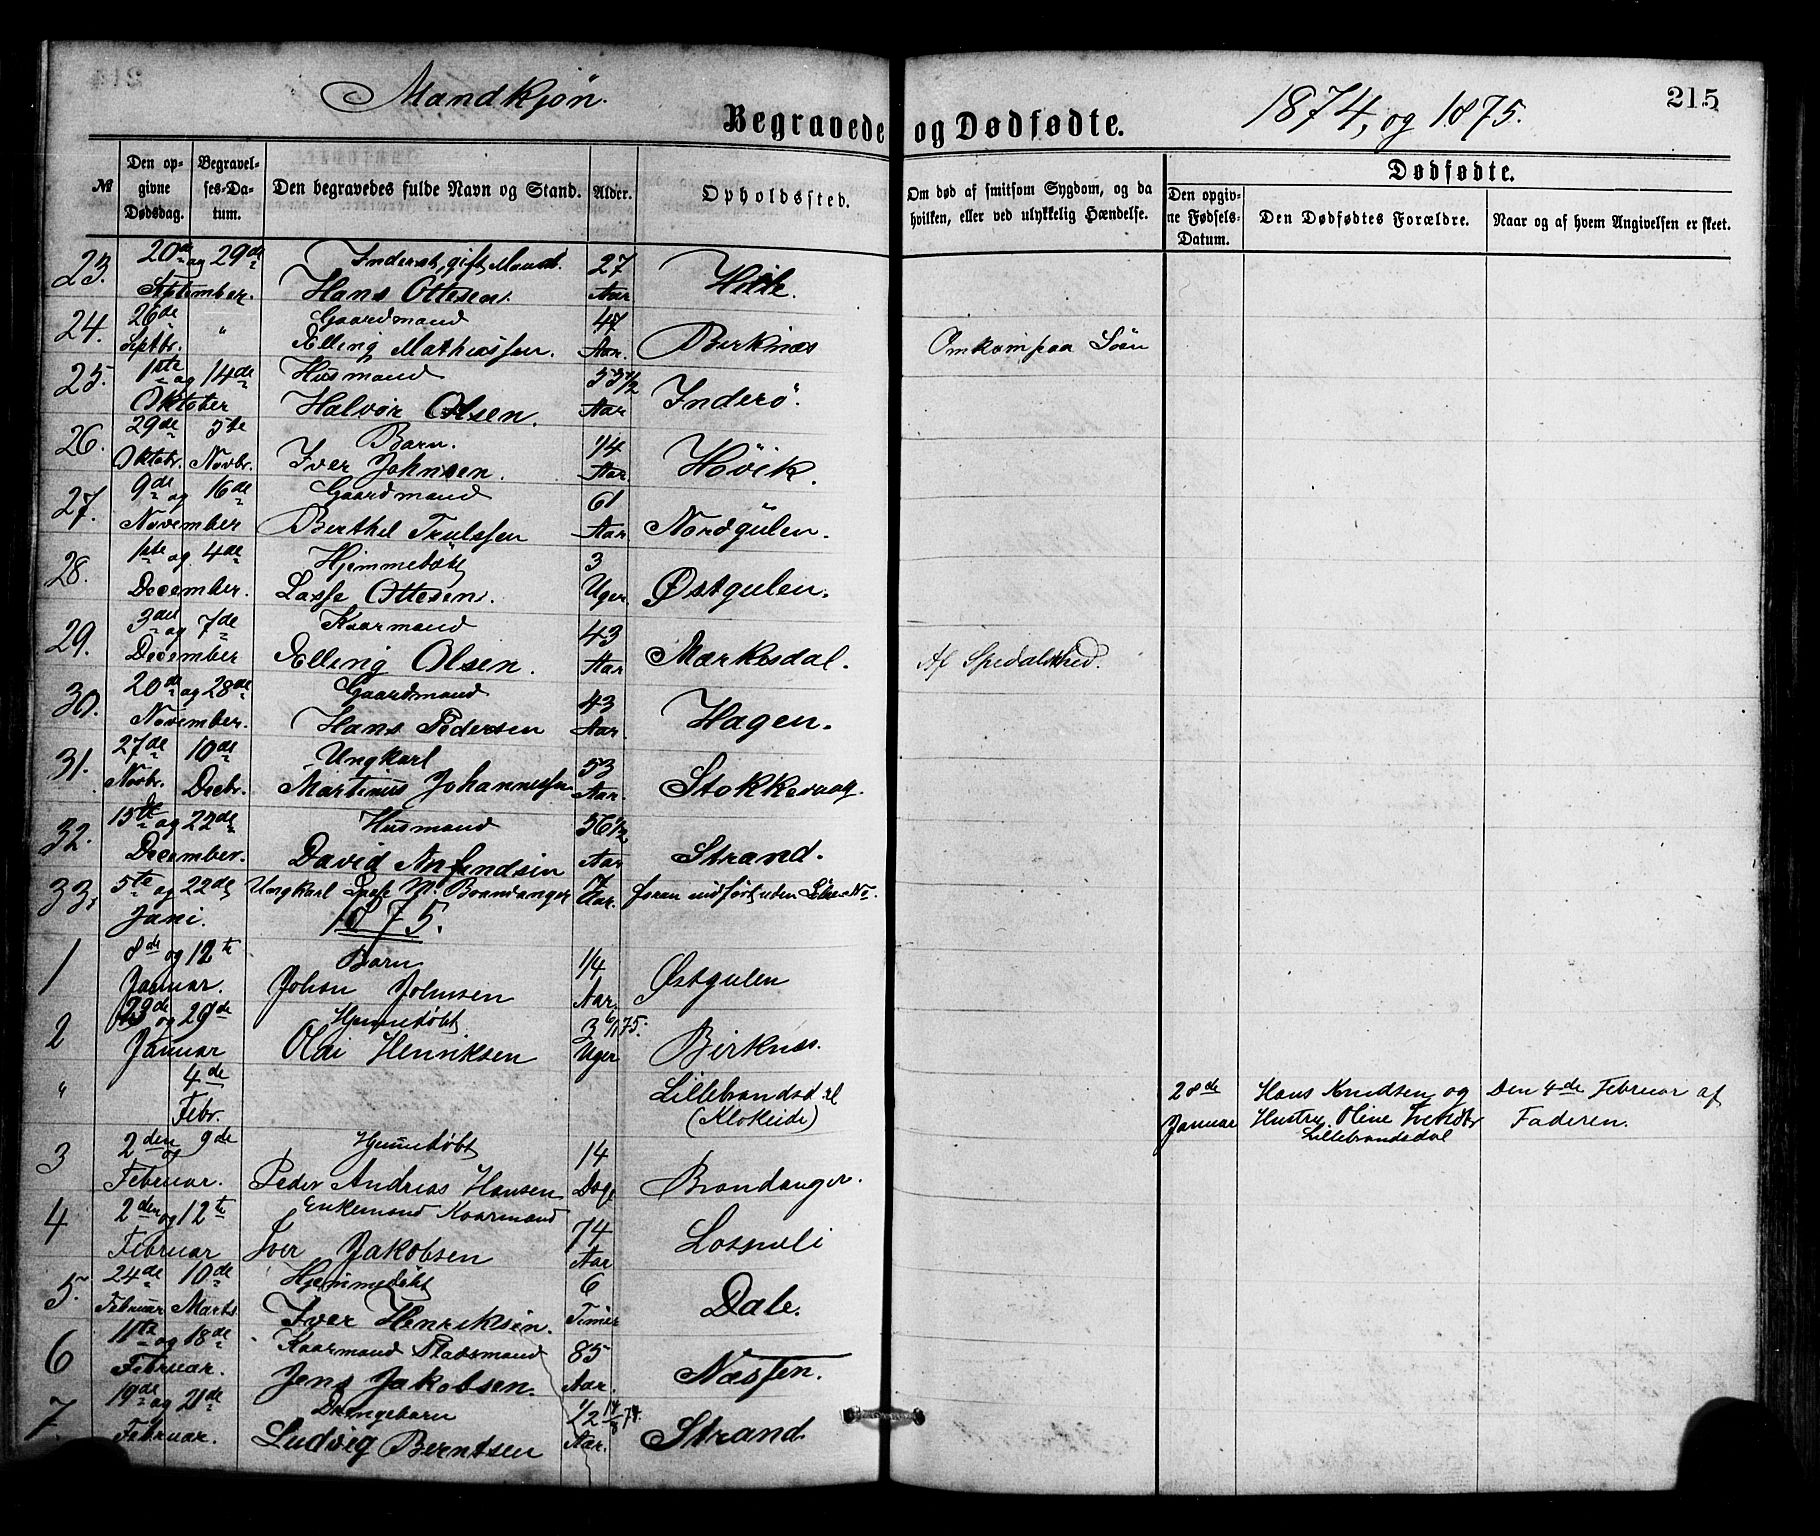 Mandkjøn. Begravede og Dødfødte. 1874, og 1875. 215
№ Den opgivne Dødsdag. Begravelses-Datum. Den begravedes fulde Navn og Stand. Alder. Opholdssted. Om død af smitsom Sygdom, og da hvilken, eller ved ulykkelig Hændelse. Dødfødte. Den opgivne Fødsels-Datum. Den Dødfødtes Forældre. Naar og af hvem Angivelsen er skeet.
23. 20de og 29de Inderst, gift Mand. 27
September. Hans Ottesen. Aar.
24. 26de " Gaardmand 47
Septbr. Elling Mathiassen. Aar. Birknæs Omkom paa Søen
25. 1ste og 14de Husmand 53 1/2
Oktober Halvor Olsen. Aar Inderö.
26. 29de 5te Barn. 1/4
Oktobr. Novbr. Iver Johnsen. Aar. Hövik.
27. 9de og 16de Gaardmand 61
November Berthel Trulssen Aar Nordgulen.
28. 1ste og 4de Hjemmedøbt 3
December. Lasse Ottesen. Uger. Østgulen.
29. 3die og 7de Kaarmand 43
December Elling Olsen. Aar Mærkesdal. Af Spedalskhed.
30. 20de og 28de Gaardmand 43
November. Hans Pedersen Aar. Hagen.
31. 27de 10de Ungkarl 53
Novbr. Decbr. Martinus Johannessen Aar. Stokkevaag.
32. 15de og 22de Husmand 56 1/2
December. David Anfindsen Aar Strand.
33. 5te og 22de Ungkarl Lasse N. Brandanger Aar. foran indført uden Löbe-No.
Juni. 1875.
1 8de og 12te Barn 1/4
Januar. Johan Johnsen Aar. Østgulen
2 23de og 29de Hjemmedøbt 3 6/1 75.
Januar Olai Henriksen Uger Birknæs.
" 4de Febr. Lillebrandsdal (Klokeide) 28de Januar Hans Knudsen og Hustru Oline Lillebrandsdal Den 4de Februar af Faderen.
3 2den og 9de Hjemmedøbt 14
Februar. Peder Andreas Hansen Dage Brandanger.
4 2den og 12te Enkemand Kaarmand 74
Februar Iver Jakobsen Aar
5. 24de 10de Hjemmedøbt 6
Februar Marts. Iver Henriksen. Timer Dale.
6 11te og 18de Kaarmand Pladsmand 85
Februar. Jens Jakobsen. Aar. Næssen.
7. 19de og 21de Drengebarn 1/2
Februar. Ludvig Berntsen Aar. Strand.